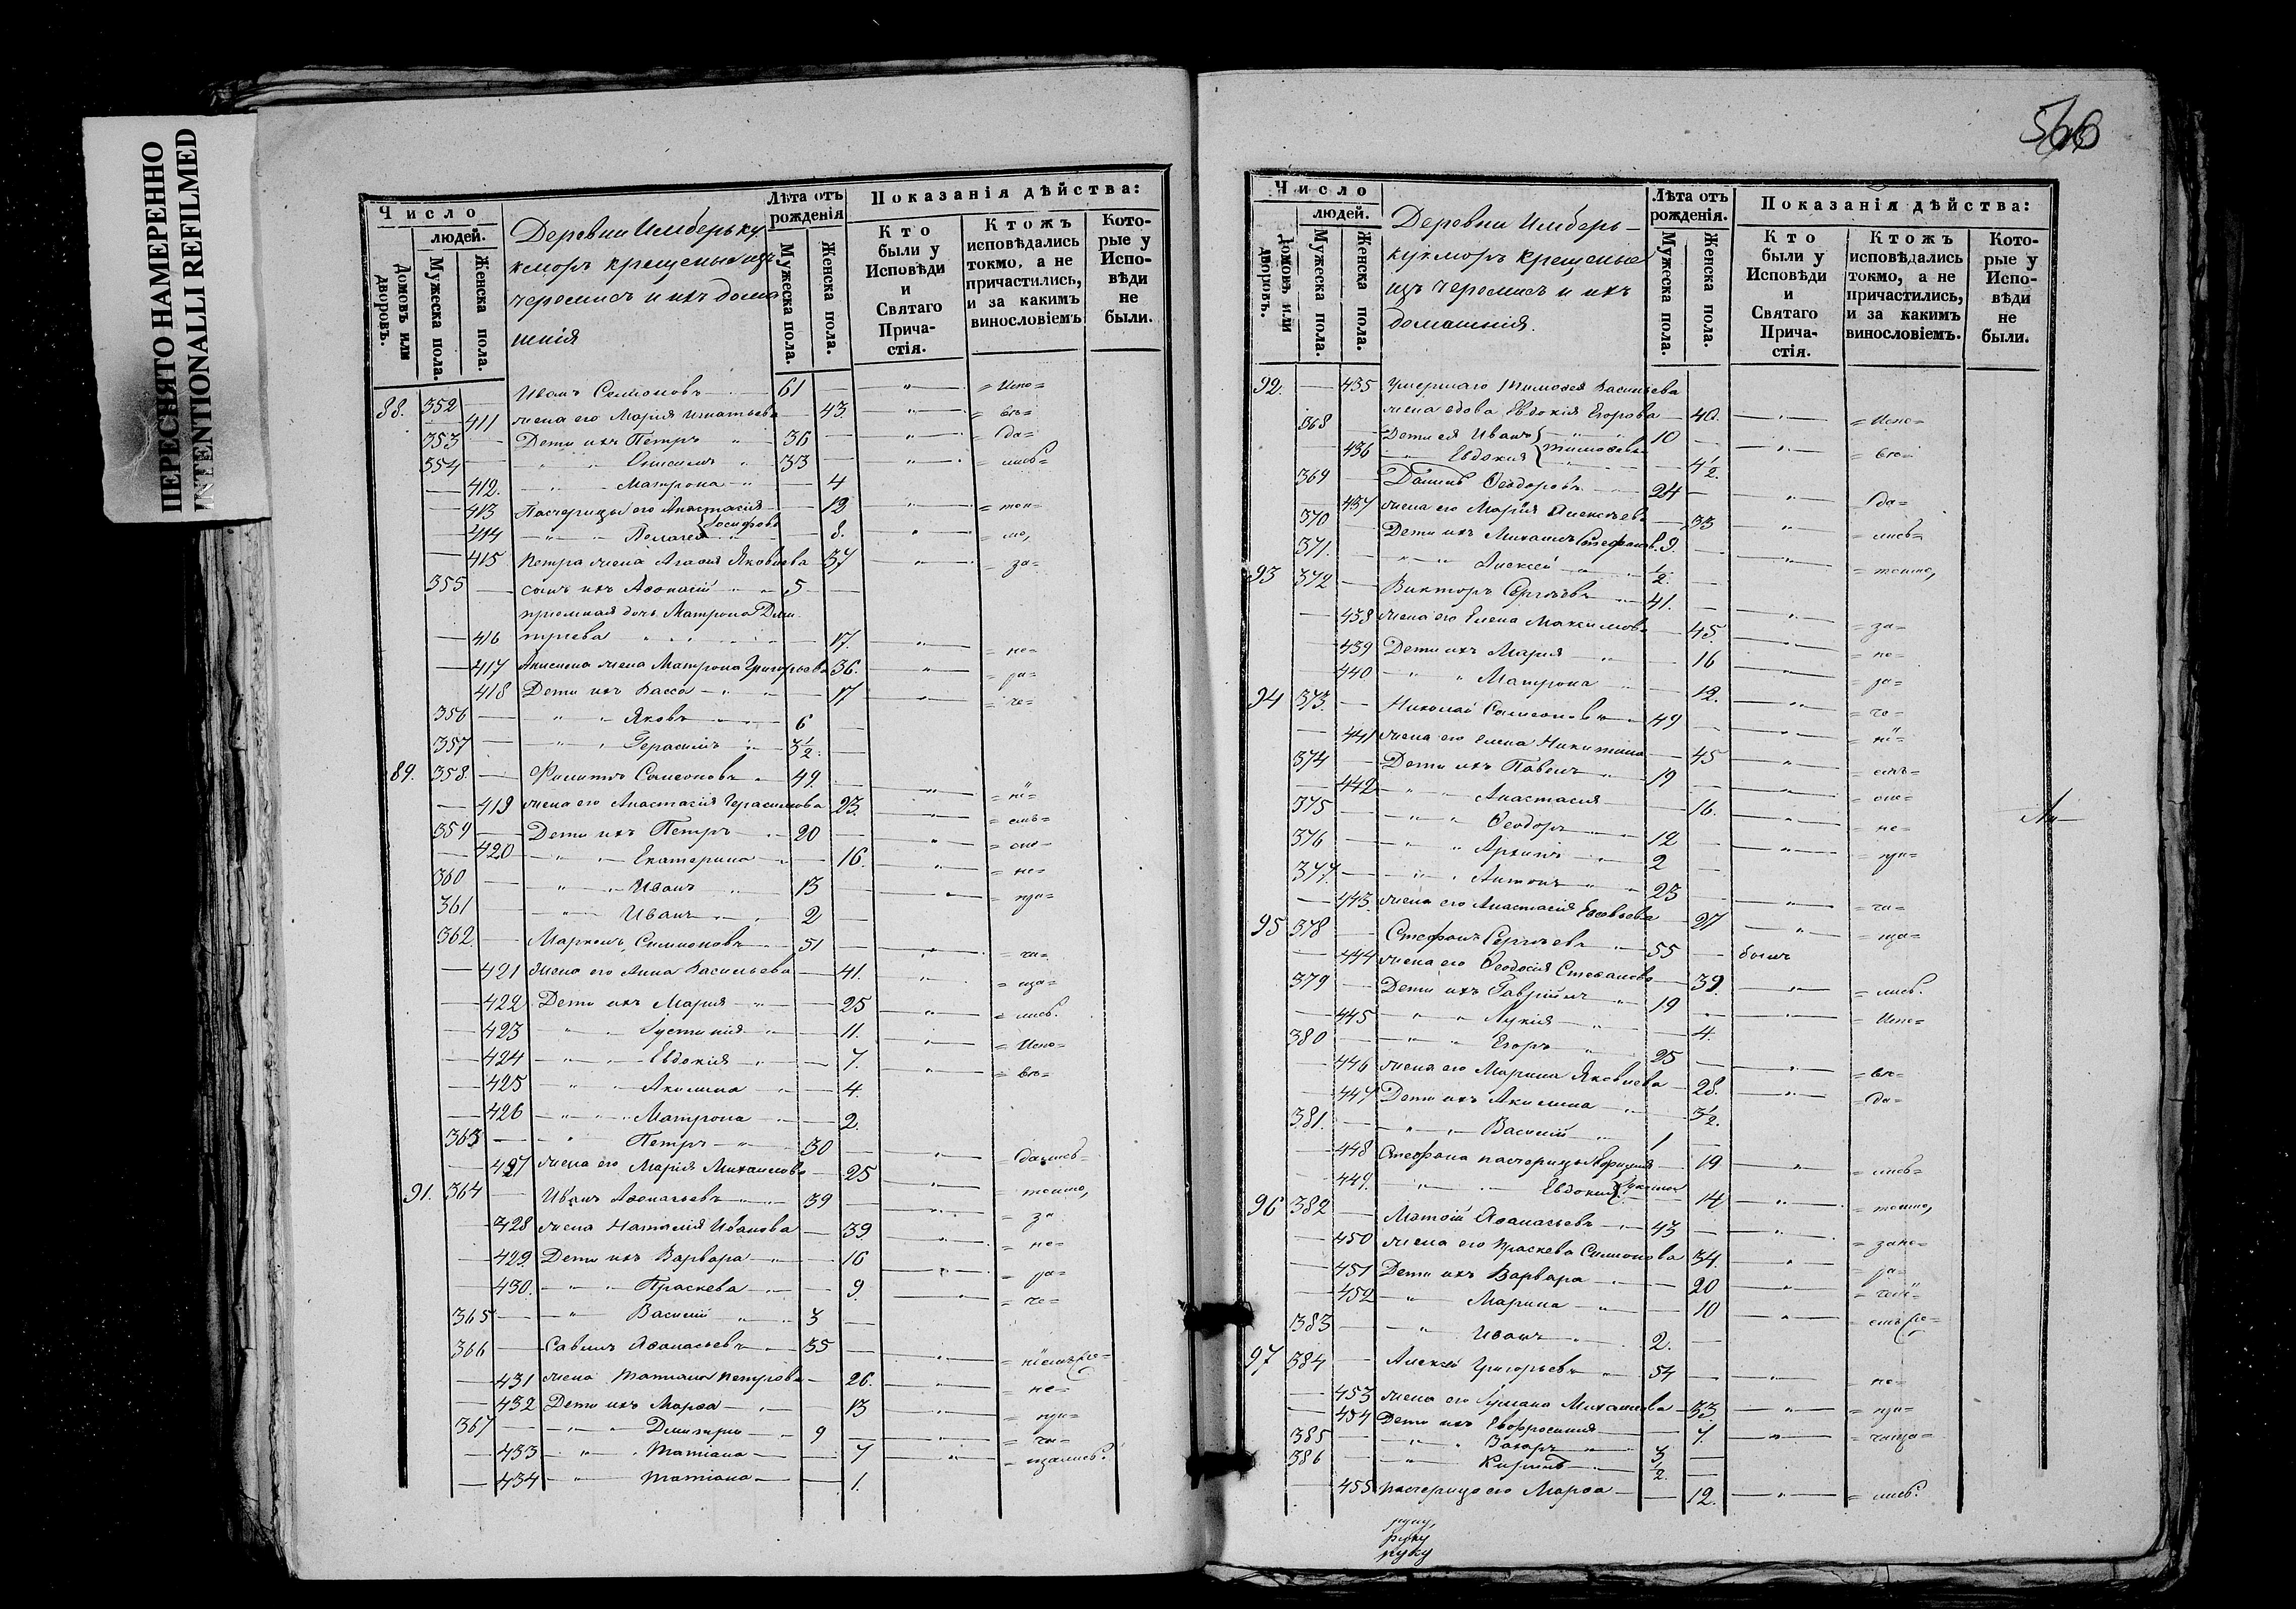 ПЕРЕСНЯТО НАМЕРЕННО
INTENTIONALLI REFILMED
Число
людей.
Домовъ или дворовъ.
Мужеска пола.
Женска пола.
Деревни Имберьку
кморъ крещеные изъ
черемисъ и ихъ дома
шнія
Лѣта отъ рожденія
Мужеска пола.
Женска пола.
Показанія дѣйства:
Кто были у Исповѣди и Святаго Прича- стія.
Ктожъ исповѣдались токмо, а не причастились, и за какимъ винословіемъ
Кото- рые у Испо- вѣди не были.
88. 352 — Иванъ Семионовъ 61 — „ = Испо=
— 411 жена его Марія Игнатьева — 43 „ = вѣ=
353 — Дети ихъ Петръ 36 — „ = да=
354 — „ „ Онисимъ 33 — „ = лись=
— 412. „ „ Матрона — 4
— 413 Пасчерицы его Анастасія — 12 „ = ток=
— 414 „ „ Пелагея Іосифовы — 8. „ = мо,
— 415 Петра жена Агафія Яковлева 37 „ = за=
355 — сынъ ихъ Афонасій 5 —
приемная дочь Матрона Дми
— 416 тріева — 17. „ = не=
— 417 Анисима жена Матрона Григорьева 36. „ = ра=
— 418 Дети ихъ Васса — 17 „ = че=
356 — „ „ Яковъ 6 —
357 — „ „ Герасимъ 3½ —
89. 358 — Филиппъ Самсоновъ 49. — „ = ні=
— 419 жена его Анастасія Герасимова 23. „ = емъ=
359 — Дети ихъ Петръ 20 — „ = оно=
— 420 „ „ Екатерина — 16. „ = не=
360 — „ „ Иванъ 13 — „ = при=
361 — „ „ Иванъ 2 —
362. — Маркелъ Симионовъ 51 — „ = ча=
— 421 Жена его Анна Васильева — 41. „ = ща=
— 422 Дети ихъ Мария — 25 „ = лись.
— 423 „ „ Іустинія — 11. „ = Испо=
— 424 „ „ Евдокія — 7. „ = вѣ=
— 425 „ „ Акилина — 4.
— 426 „ „ Матрона — 2.
363 — „ Петръ 30 — „ = дались=
— 427 жена его Марія Михаилова — 25 „ = токмо,
91. 364 — Иванъ Афонасьевъ 39 — „ = за
— 428 жена Наталія Иванова — 39 „ = не=
— 429. Дети ихъ Варвара — 16 „ = ра=
— 430. „ „ Праскева — 9. „ = че=
365 — „ „ Василій 3 —
366 — Савинъ Афанасьевъ 35 — „
— 431 жена Татиана Петрова — 26. „ = не=
— 432 Дети ихъ Марфа — 13 „ = при=
367 — „ „ Димитрій 9 — „ = ча=
— 433 „ „ Татиана — 7 „ = щались.
— 434 „ „ Татиана — 1.
566
Число
людей.
Домовъ или дворовъ.
Мужеска пола.
Женска пола.
Деревни Имберь-
кукморъ крещеные
изъ черемисъ и ихъ
домашнія.
Лѣта отъ рожденія.
Мужеска пола.
Женска пола.
Показанія дѣйства:
Кто были у Исповѣди и Святаго Прича- стія.
Ктожъ исповѣдались токмо, а не причастились, и за какимъ винословіемъ.
Кото- рые у Испо- вѣди не были.
92. — 435 Умершаго Тимофея Васильева
жена вдова Евдокія Егорова — 40. „ = Испо=
368 — Дети ея Иванъ Тимофеевы 10 — „ = вѣ=
— 436 „ Евдокія — 4½.
369 — Данилъ Феодоровъ 24 — „ = да=
— 437 жена его Марія Алексѣева — 33 „ = лись=
370 — Дети ихъ Михаилъ Стефановъ. 9. — „ = токмо,
371. — „ „ Алексѣй ½. —
93 372 — Викторъ Сергѣевъ 41. — „
— 438 жена его Елена Максимова — 45. „ = за=
— 439 Дети ихъ Мария — 16 „ = не=
— 440 „ „ Матрона — 12. „ = ра=
94 373. — Николай Самсоновъ 49 — „ = че=
— 441 жена его Елена Никитина — 45 „ = ні=
374 — Дети ихъ Павелъ 19 — „ = емъ=
— 442 „ „ Анастасія — 16. „ = оне=
375 — „ „ Феодоръ 12 — „ = не=
376 — „ „ Архипъ 2 — „ = при=
377. — „ „ Антонъ 23 — „ = ча=
— 443. жена его Анастасія — 27 „ = ща=
95 378 — Стефанъ Сергѣевъ 55 — былъ
— 444 жена его Феодосія Стефанова — 39. „ = лись.
379 — Дети ихъ Гавріилъ 19 — „ = Испо=
— 445 „ „ Лукія — 4.
380 — „ „ Егоръ 25 — „ = вѣ=
— 446 жена его Марина Яковлева — 28. „ = да=
— 447 Дети ихъ Акилина — 3½.
381. — „ „ Василій 1 —
— 448 Стефана пасчерицы — 19 „ = лись=
— 449. „ „ Евдокия — 14 „ = токмо,
96 382 — Матфій Афанасьевъ 43 — „ = зане=
— 450 жена его Праскева Симионова 34. „ = ра=
— 451 Дети ихъ Варвара — 20 „ = чені=
— 452 „ Марина — 10 „
383 — „ Иванъ 2. —
97 384 — Алексѣй Григорьевъ 54 — „ = не=
— 453 жена его Іулиана Михаилова — 33. „ = при=
— 454 Дети ихъ Евфросинія — 7. „ = чаща=
385 — „ „ Захаръ 3 —
386 — „ „ Кирилъ ½. —
— 455 пасчерица его Марфа — 12. „ = лись.
руку
руку